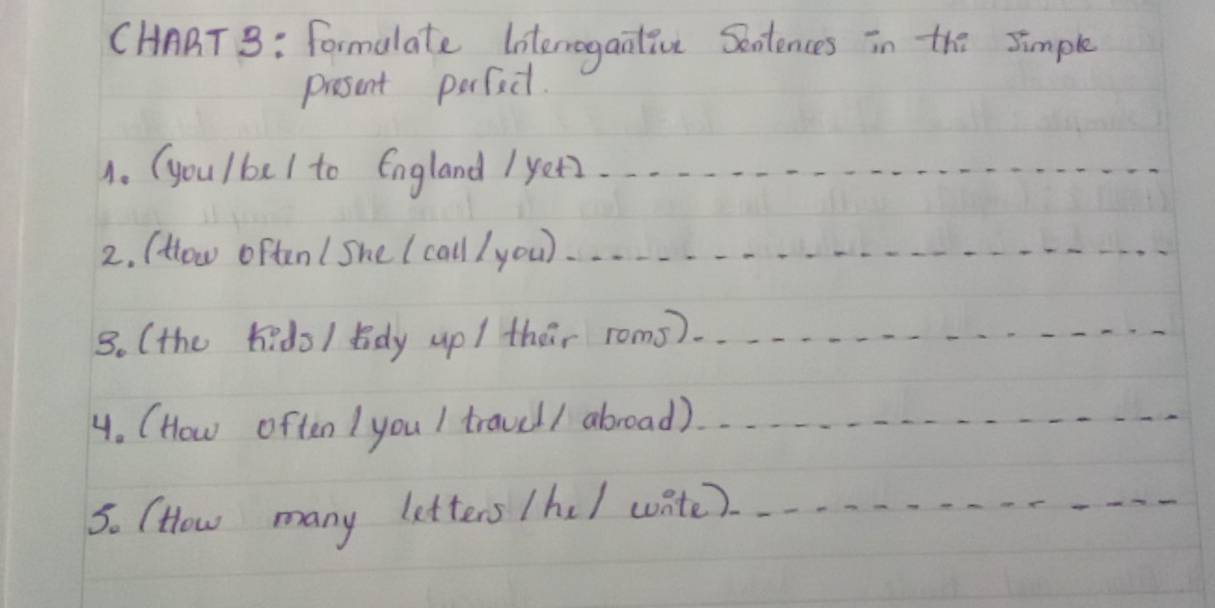 CHART 3: Formulate Interrogantive Sentences in the simple
present perfect.
1. (you/be/ to England / yet)
2. (How often / She / call / you)
3. (the kids / tidy up / their roms)
4. (How often / you / travel / abroad)
5. (How many letters / he / write)